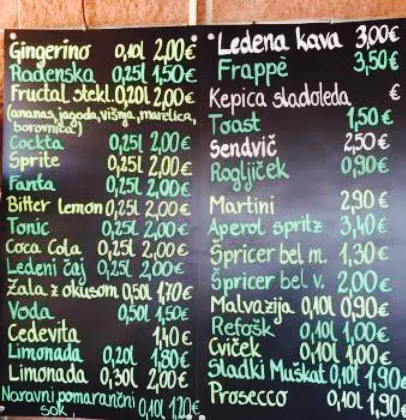 Gingerino 0,10l 2,00€
Radenska 0,25l 1,50€
Fructal stekl. 0,20l 2,00€
(ananas, jagoda, višnja, marelica,
borovnica)
Cockta 0,25l 2,00€
Sprite 0,25l 2,00€
Fanta 0,25l 2,00€
Bitter lemon 0,25l 2,00€
Tonic 0,25l 2,00€
Coca Cola 0,25l 2,00€
Ledeni čaj 0,25l 2,00€
Zala z okusom 0,50l 1,70€
Voda 0,50l 1,50€
Cedevita 1,40€
Limonada 0,20l 1,80€
Limonada 0,30l 2,00€
Naravni pomarančni
sok 0,10l 1,20€
Ledena kava 3,00€
Frappè 3,50€
Kepica sladoleda €
Toast 1,50€
Sendvič 2,50€
Rogljiček 0,90€
Martini 2,90€
Aperol spritz 3,40€
Špricer bel m. 1,30€
Špricer bel v. 2,00€
Malvazija 0,10l 0,90€
Refošk 0,10l 1,00€
Cviček 0,10l 1,00€
Sladki Muškat 0,10l 1,90€
Prosecco 0,10l 1,90€